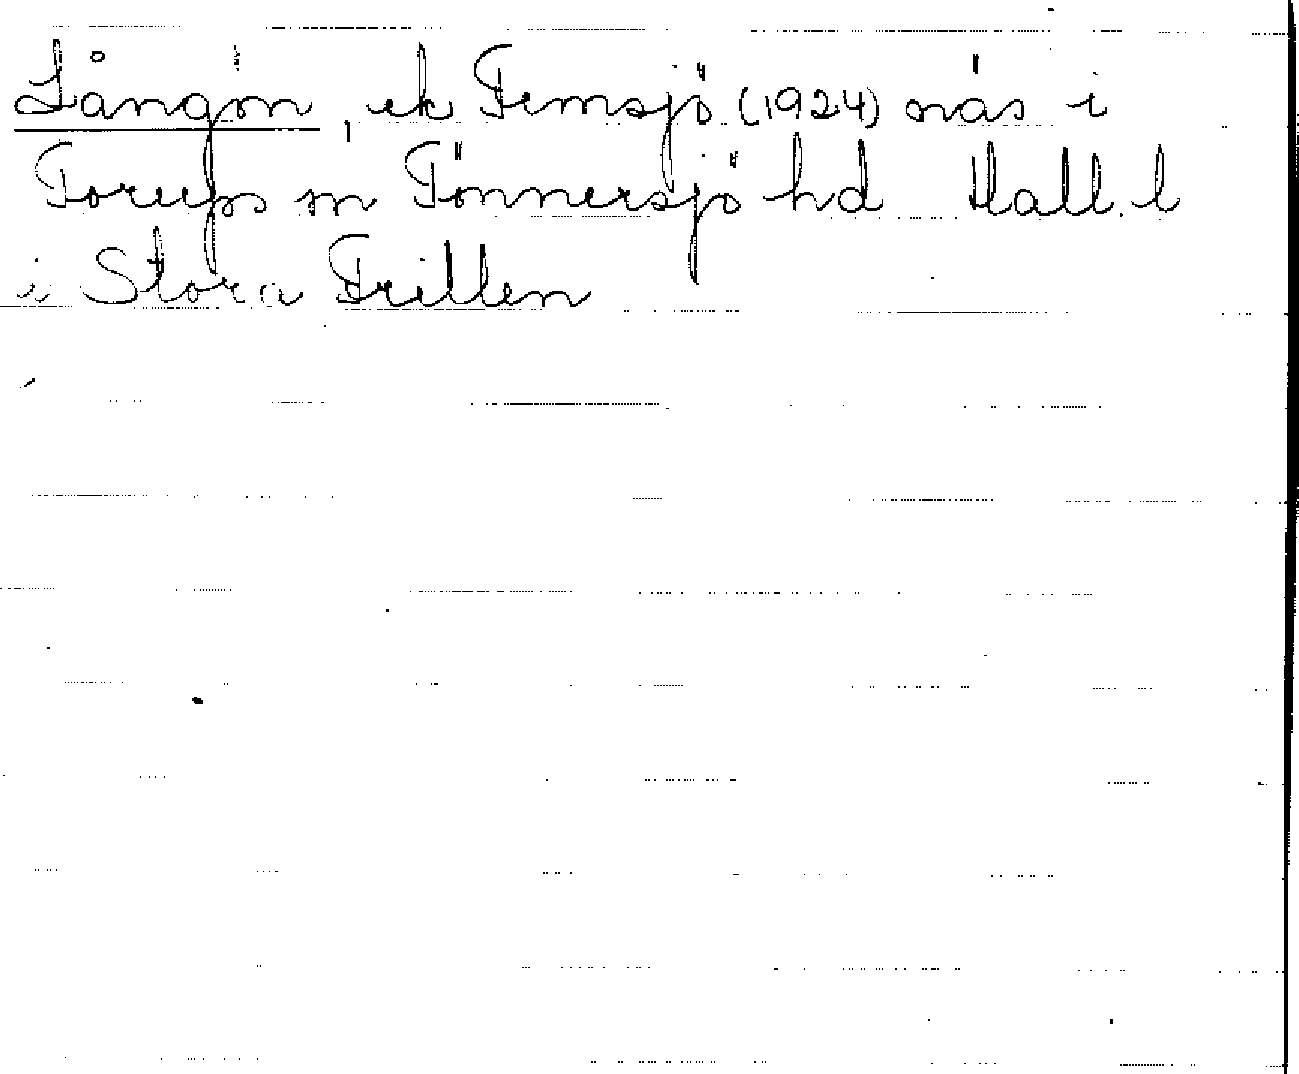 Långön, ek Femsjö (1924) nås i
Torups sn Tönnersjö hd Hall. l
i Stora Frillen